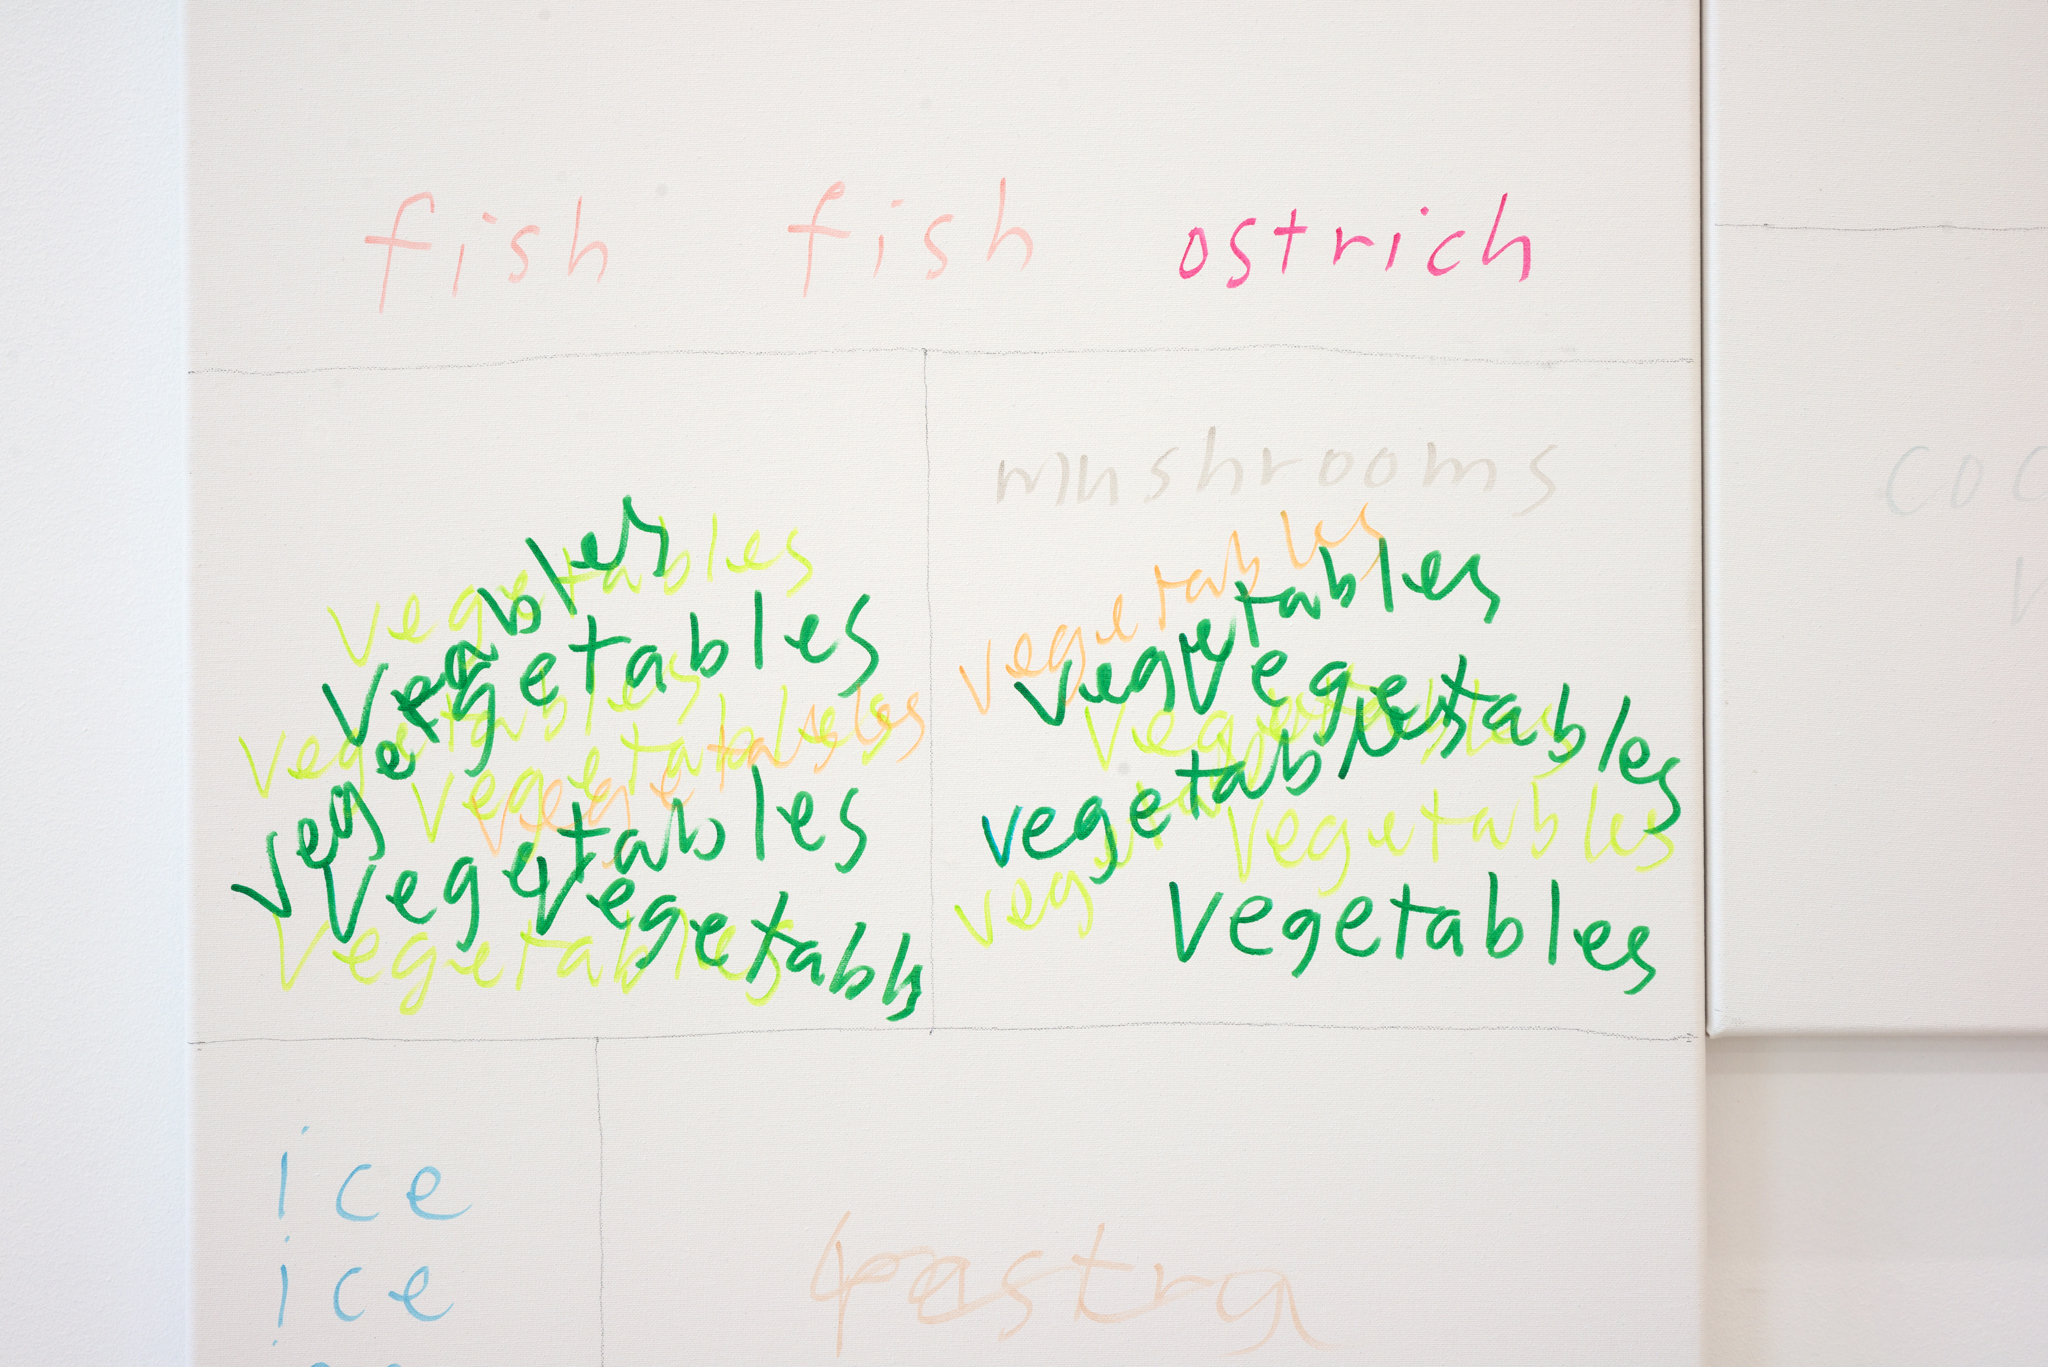 fish fish ostrich
vegetables
vegetables
vegetables
vegetables
vegetables
vegetables
vegetables
vegetables
vegetables
mushrooms
vegetables
vegetables
vegetables
vegetables
vegetables
vegetables
vegetables
vegetables
ice
ice